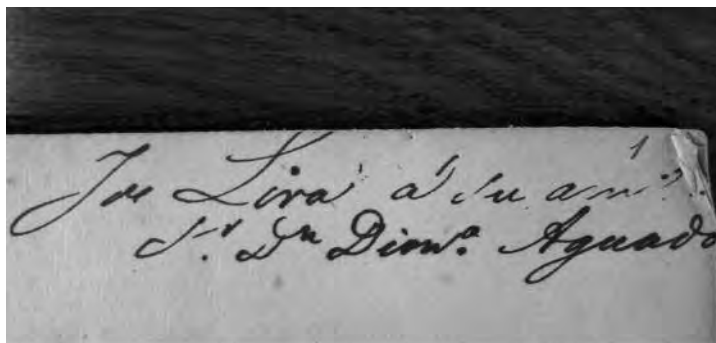 Jose Lira á su am.º
S.r Dn Dion.º Aguado